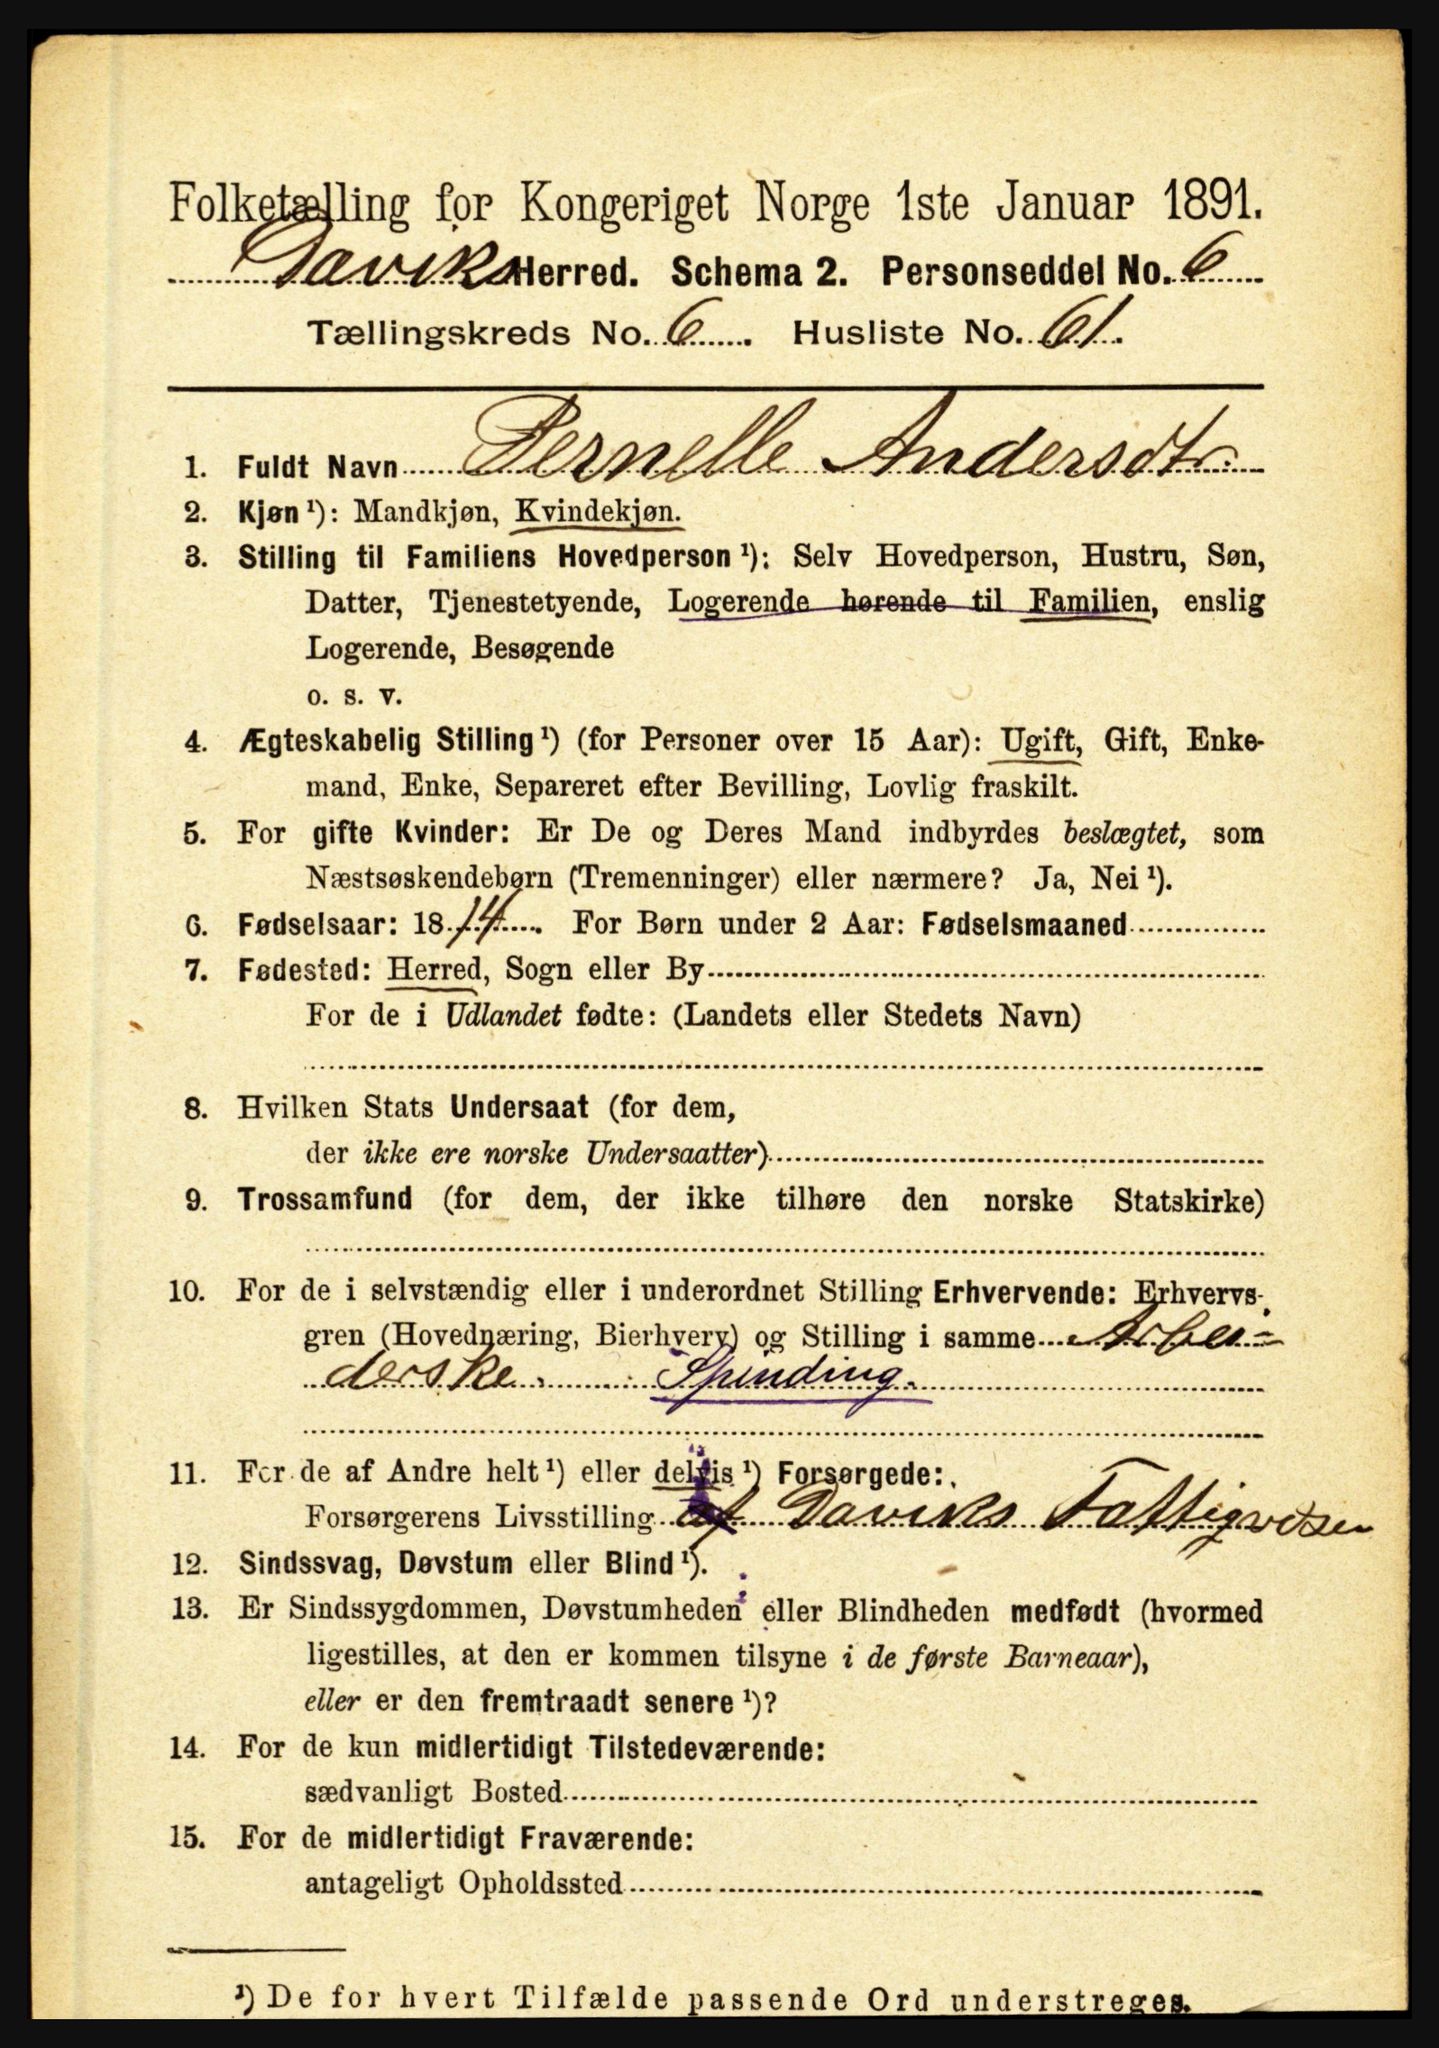 Folketælling for Kongeriget Norge 1ste Januar 1891.
Daviks Herred. Schema 2. Personseddel No. 6
Tællingskreds No. 6. Husliste No. 61.
1. Fuldt Navn Pernelle Andersdtr.
2. Kjøn ¹): Mandkjøn, Kvindekjøn.
3. Stilling til Familiens Hovedperson ¹): Selv Hovedperson, Hustru, Søn,
Datter, Tjenestetyende, Logerende hørende til Familien, enslig
Logerende, Besøgende
o. s. v.
4. Ægteskabelig Stilling ¹) (for Personer over 15 Aar): Ugift, Gift, Enke-
mand, Enke, Separeret efter Bevilling, Lovlig fraskilt.
5. For gifte Kvinder: Er De og Deres Mand indbyrdes beslægtet, som
Næstsøskendebørn (Tremenninger) eller nærmere? Ja, Nei ¹).
6. Fødselsaar: 1814. For Børn under 2 Aar: Fødselsmaaned
7. Fødested: Herred, Sogn eller By
For de i Udlandet fødte: (Landets eller Stedets Navn)
8. Hvilken Stats Undersaat (for dem,
der ikke ere norske Undersaatter)
9. Trossamfund (for dem, der ikke tilhøre den norske Statskirke)
10. For de i selvstændig eller i underordnet Stilling Erhvervende: Erhvervs-
gren (Hovednæring, Bierhverv) og Stilling i samme Arbei-
derske. Spinding.
11. For de af Andre helt ¹) eller delvis ¹) Forsørgede:
Forsørgerens Livsstilling af Daviks Fattigvæsen
12. Sindssvag, Døvstum eller Blind ¹).
13. Er Sindssygdommen, Døvstumheden eller Blindheden medfødt (hvormed
ligestilles, at den er kommen tilsyne i de første Barneaar),
eller er den fremtraadt senere ¹)?
14. For de kun midlertidigt Tilstedeværende:
sædvanligt Bosted
15. For de midlertidigt Fraværende:
antageligt Opholdssted
¹) De for hvert Tilfælde passende Ord understreges.